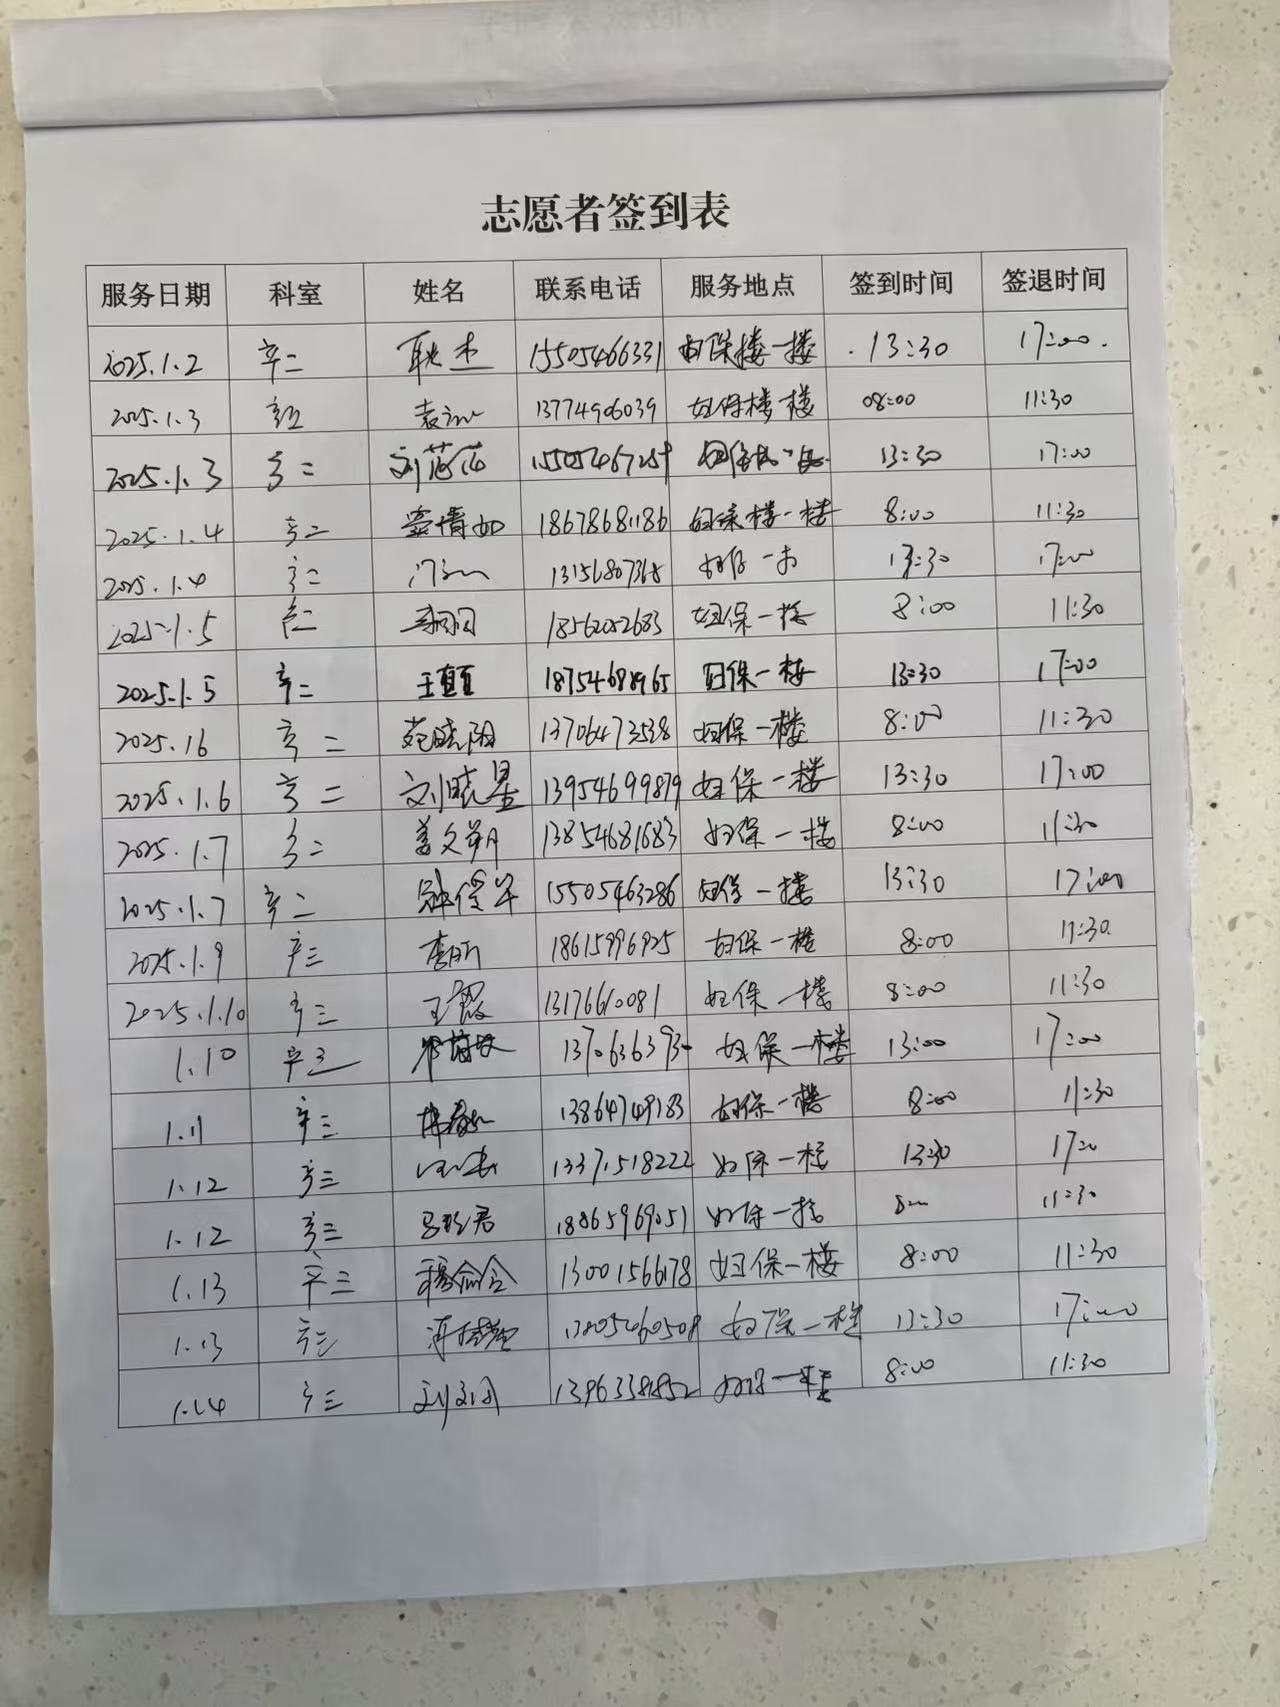 志愿者签到表
服务日期 科室 姓名 联系电话 服务地点 签到时间 签退时间
2025.1.2 产二 耿杰 15505466331 妇保楼一楼 13:30 17:00
2025.1.3 13774906039 妇保楼一楼 08:00 11:30
2025.1.3 产二 刘茜茜 13:30 17:00
2025.1.4 产二 18678681186 妇保楼一楼 8:00 11:30
2025.1.4 产二 13156807368 13:30 17:00
2025.1.5 产二 18562052683 妇保一楼 8:00 11:30
2025.1.5 产二 18754688965 妇保一楼 13:30 17:00
2025.1.6 产二 苑晓阳 13706473538 妇保一楼 8:00 11:30
2025.1.6 产二 刘晓昱 13954699879 妇保一楼 13:30 17:00
2025.1.7 产二 姜文朔 13854681683 妇保一楼 8:00 11:30
2025.1.7 产二 15505463286 妇保一楼 13:30 17:00
2025.1.9 产三 李昕 18615996925 妇保一楼 8:00 11:30
2025.1.10 产三 王霞 13176610081 妇保一楼 8:00 11:30
1.10 产三 13706363930 妇保一楼 13:00 17:00
1.11 产三 13864749183 妇保一楼 8:00 11:30
1.12 产三 13371518222 妇保一楼 13:30 17:00
1.12 产三 马珍君 18865969051 妇保一楼 11:30
1.13 产三 13001566178 妇保一楼 8:00 11:30
1.13 产三 妇保一楼 13:30 17:00
1.14 产三 8:00 11:30